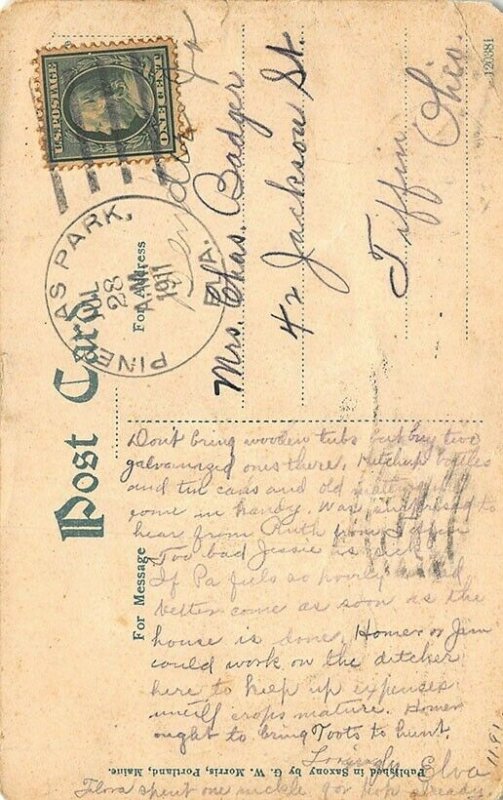 Post Card
For Address
For Message
120381
U.S. POSTAGE
ONE CENT
PINELLAS PARK,
JUL
28
1911
FLA.
Mrs. Chas. Badger
42 Jackson St.
Tiffin
Ohio.
Don't bring wooden tubs but buy two
galvanazied ones there. Ketchup bottles
and tin cans and old
come in handy. Was surprised to
hear from Ruth from
Too bad Jessie is sick.
If Pa feels so poorly
better come as soon as the
house is done. Homer or Jim
could work on the ditcher
here to help up expenses
until crops mature. Homer
ought to bring Toots to hunt.
Lovingly Elva
Flora spent one nickle for pop already.
1191
Published in Saxony by G. W. Morris, Portland, Maine.